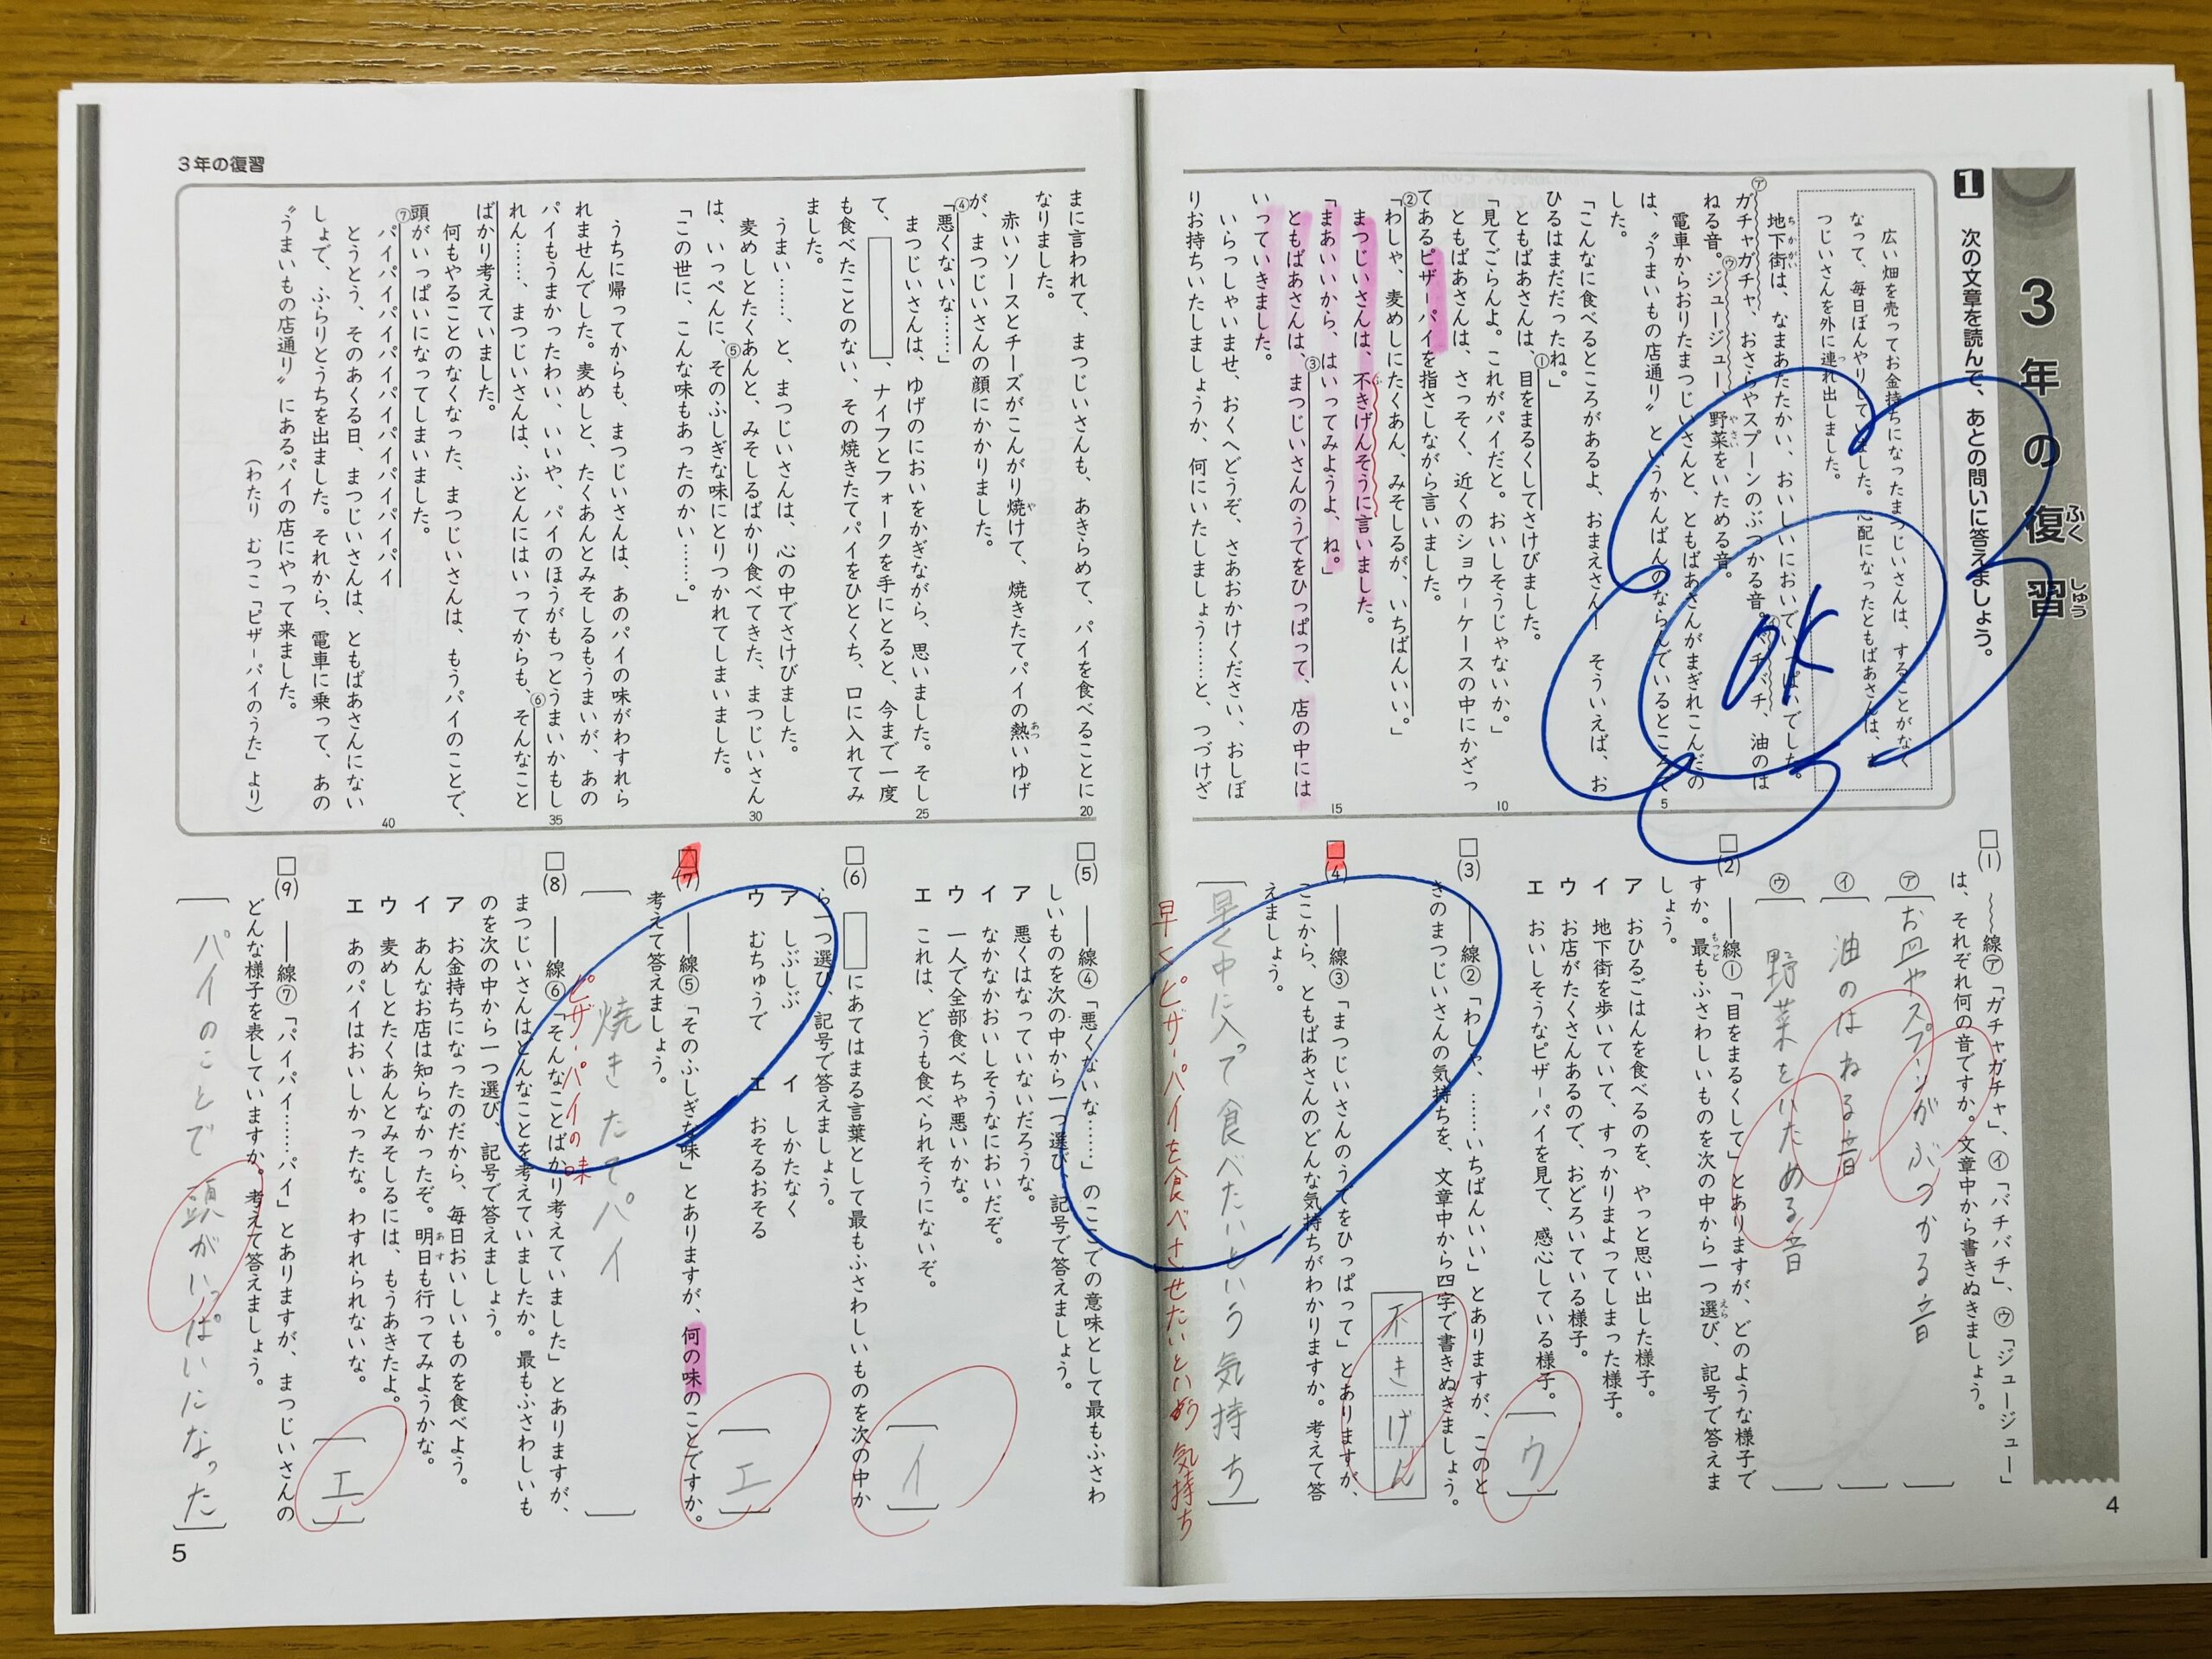 3年の復習
ふく
しゅう
1 次の文章を読んで、あとの問いに答えましょう。
広い畑を売ってお金持ちになったまつじいさんは、することがなく
なって、毎日ぼんやりしていました。心配になったともばあさんは、ま
つじいさんを外に連れ出しました。
地下街は、なまあたたかい、おいしいにおいでいっぱいでした。
㋐ガチャガチャ、おさらやスプーンのぶつかる音。㋑バチバチ、油のは
ねる音。㋒ジュージュー、野菜をいためる音。
電車からおりたまつじいさんと、ともばあさんがまぎれこんだの
は、〝うまいもの店通り〟というかんばんのならんでいるところで
した。
「こんなに食べるところがあるよ、おまえさん！ そういえば、お
ひるはまだだったね。」
ともばあさんは、①目をまるくしてさけびました。
「見てごらんよ。これがパイだと。おいしそうじゃないか。」
ともばあさんは、さっそく、近くのショウーケースの中にかざっ
てあるピザーパイを指さしながら言いました。
②「わしゃ、麦めしにたくあん、みそしるが、いちばんいい。」
まつじいさんは、不きげんそうに言いました。
「まあいいから、はいってみようよ、ね。」
ともばあさんは、③まつじいさんのうでをひっぱって、店の中には
いっていきました。
いらっしゃいませ、おくへどうぞ、さあおかけください、おしぼ
りお持ちいたしましょうか、何にいたしましょう……と、つづけざ
5
10
15
OK
(1) 〜〜線㋐「ガチャガチャ」、㋑「バチバチ」、㋒「ジュージュー」
は、それぞれ何の音ですか。文章中から書きぬきましょう。
㋐ お皿やスプーンがぶつかる音
㋑ 油のはねる音
㋒ 野菜をいためる音
(2) ――線①「目をまるくして」とありますが、どのような様子で
すか。最もふさわしいものを次の中から一つ選び、記号で答えま
しょう。
ア おひるごはんを食べるのを、やっと思い出した様子。
イ 地下街を歩いていて、すっかりまよってしまった様子。
ウ お店がたくさんあるので、おどろいている様子。
エ おいしそうなピザーパイを見て、感心している様子。
ウ
(3) ――線②「わしゃ、……いちばんいい」とありますが、このと
きのまつじいさんの気持ちを、文章中から四字で書きぬきましょう。
不きげん
(4) ――線③「まつじいさんのうでをひっぱって」とありますが、
ここから、ともばあさんのどんな気持ちがわかりますか。考えて答
えましょう。
早く中に入って食べたいという気持ち
早くピザーパイを食べさせたいという気持ち
4
3年の復習
まに言われて、まつじいさんも、あきらめて、パイを食べることに
なりました。
赤いソースとチーズがこんがり焼けて、焼きたてパイの熱いゆげ
が、まつじいさんの顔にかかりました。
④「悪くないな……」
まつじいさんは、ゆげのにおいをかぎながら、思いました。そし
て、、ナイフとフォークを手にとると、今まで一度
も食べたことのない、その焼きたてパイをひとくち、口に入れてみ
ました。
うまい……、と、まつじいさんは、心の中でさけびました。
麦めしとたくあんと、みそしるばかり食べてきた、まつじいさん
は、いっぺんに、⑤そのふしぎな味にとりつかれてしまいました。
「この世に、こんな味もあったのかい……。」
うちに帰ってからも、まつじいさんは、あのパイの味がわすれら
れませんでした。麦めしと、たくあんとみそしるもうまいが、あの
パイもうまかったわい、いいや、パイのほうがもっとうまいかもし
れん……、まつじいさんは、ふとんにはいってからも、⑥そんなこと
ばかり考えていました。
何もやることのなくなった、まつじいさんは、もうパイのことで、
頭がいっぱいになってしまいました。
⑦パイパイパイパイパイパイパイパイパイパイ
とうとう、そのあくる日、まつじいさんは、ともばあさんにない
しょで、ふらりとうちを出ました。それから、電車に乗って、あの
〝うまいもの店通り〟にあるパイの店にやって来ました。
（わたり むつこ「ピザーパイのうた」より）
20
25
30
35
40
(5) ――線④「悪くないな……」のここでの意味として最もふさわ
しいものを次の中から一つ選び、記号で答えましょう。
ア 悪くはなっていないだろうな。
イ なかなかおいしそうなにおいだぞ。
ウ 一人で全部食べちゃ悪いかな。
エ これは、どうも食べられそうにないぞ。
イ
(6) にあてはまる言葉として最もふさわしいものを次の中か
ら一つ選び、記号で答えましょう。
ア しぶしぶ イ しかたなく
ウ むちゅうで エ おそるおそる
エ
(7) ――線⑤「そのふしぎな味」とありますが、何の味のことですか。
考えて答えましょう。
焼きたてパイ
ピザーパイの味
(8) ――線⑥「そんなことばかり考えていました」とありますが、
まつじいさんはどんなことを考えていましたか。最もふさわしいも
のを次の中から一つ選び、記号で答えましょう。
ア お金持ちになったのだから、毎日おいしいものを食べよう。
イ あんなお店は知らなかったぞ。明日も行ってみようかな。
ウ 麦めしとたくあんとみそしるには、もうあきたよ。
エ あのパイはおいしかったな。わすれられないな。
エ
(9) ――線⑦「パイパイ……パイ」とありますが、まつじいさんの
どんな様子を表していますか。考えて答えましょう。
パイのことで頭がいっぱいになった
5